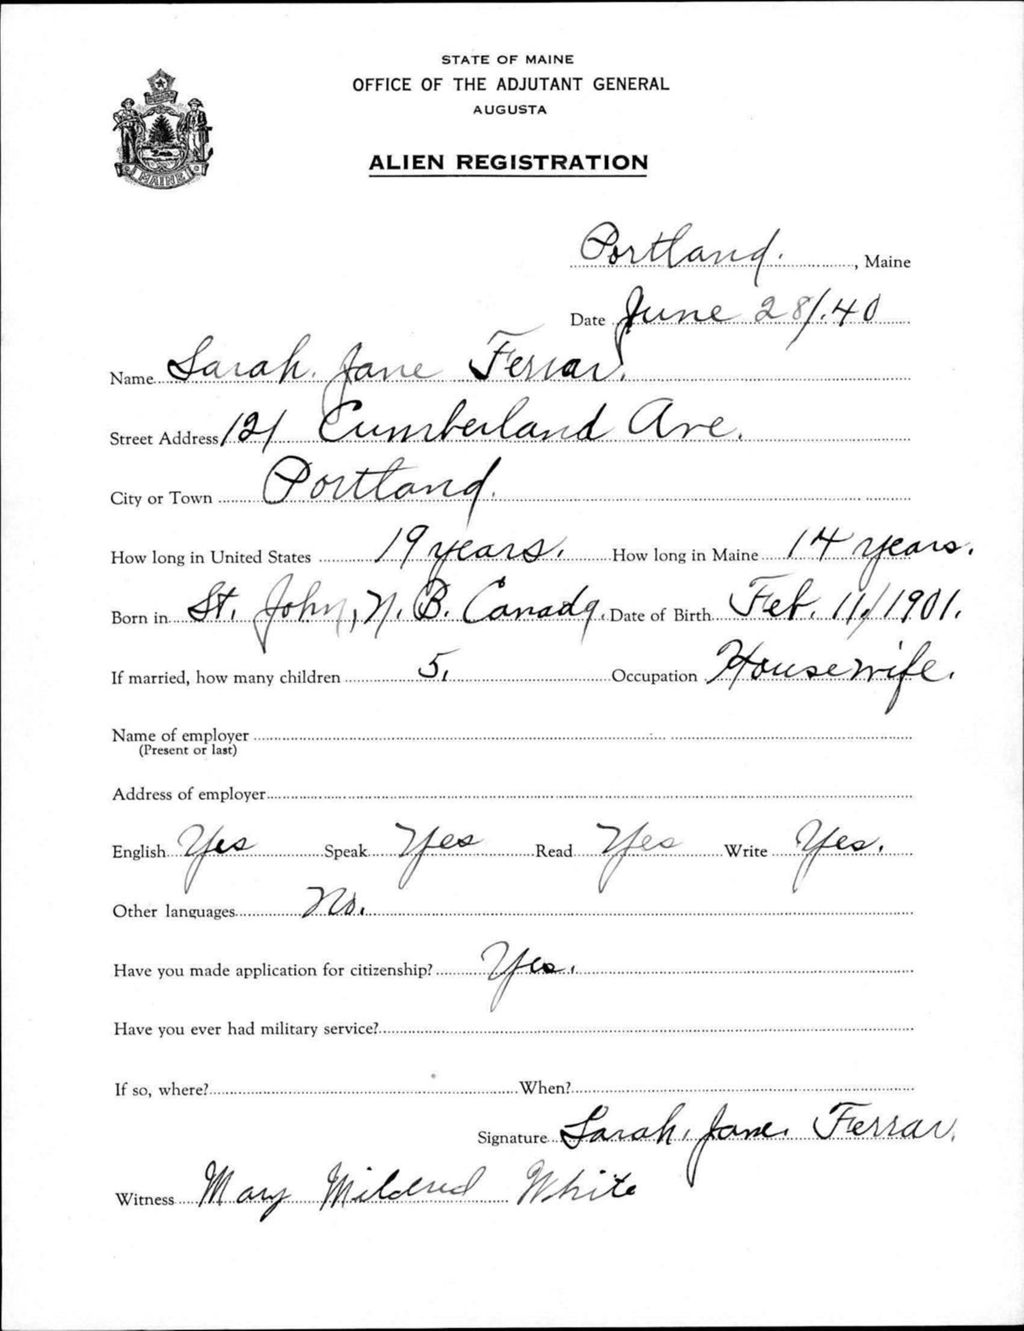 STATE OF MAINE
OFFICE OF THE ADJUTANT GENERAL
AUGUSTA
ALIEN REGISTRATION
MAINE
Portland. , Maine
Date June 28/.40
Name Sarah. Jane Ferrar.
Street Address 121 Cumberland Ave.
City or Town Portland.
How long in United States 19 years. How long in Maine 14 years.
Born in St. John, N. B. Canada. Date of Birth Feb. 11/1901.
If married, how many children 5. Occupation Housewife.
Name of employer
(Present or last)
Address of employer
English Yes Speak Yes Read Yes Write Yes.
Other languages No.
Have you made application for citizenship? Yes.
Have you ever had military service?
If so, where? When?
Signature Sarah. Jane. Ferrar.
Witness Mary Mildred White